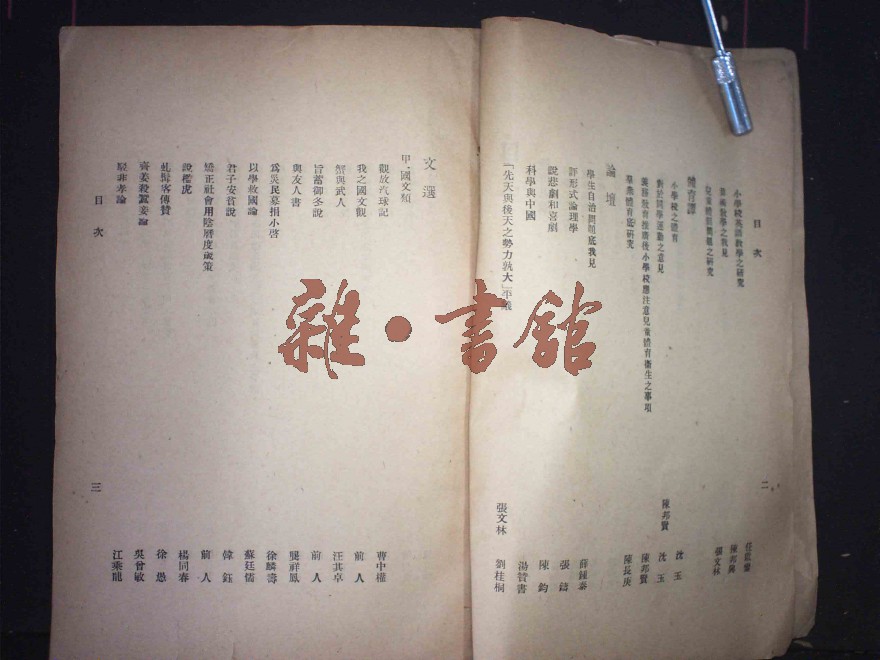 目次
小學校英語教學之研究
體育譚
小學校之體育 沈玉
對於同學運動之意見 沈玉 陳邦賢
義務教育推廣後小學校應注意兒童體育衛生之事項 陳邦賢
羣衆體育底研究 陳長庚
論壇
學生自治問題底我見 薛鍾泰
評形式論理學 張鑄
說悲劇和喜劇 陳鈞
科學與中國 湯贊書
「先天與後天之勢力孰大」平議 劉桂桐 張文林
二
文選
甲、國文類
觀放汽球記 曹中權
我之國文觀 前人
介與武人 汪其卓
旨蓄御冬說 前人
與友人書 龔祥鳳
爲吳民募捐小啓 徐麟壽
以學救國論 蘇廷儒
君子安貧說 韓鈺
矯正社會用陰曆度歲策 前人
說檻虎 楊同春
虬髯客傳贊 徐愚
齊姜殺蠶妾論 吳曾敏
駁非孝論 江乘龍
目次
三
雜·書館